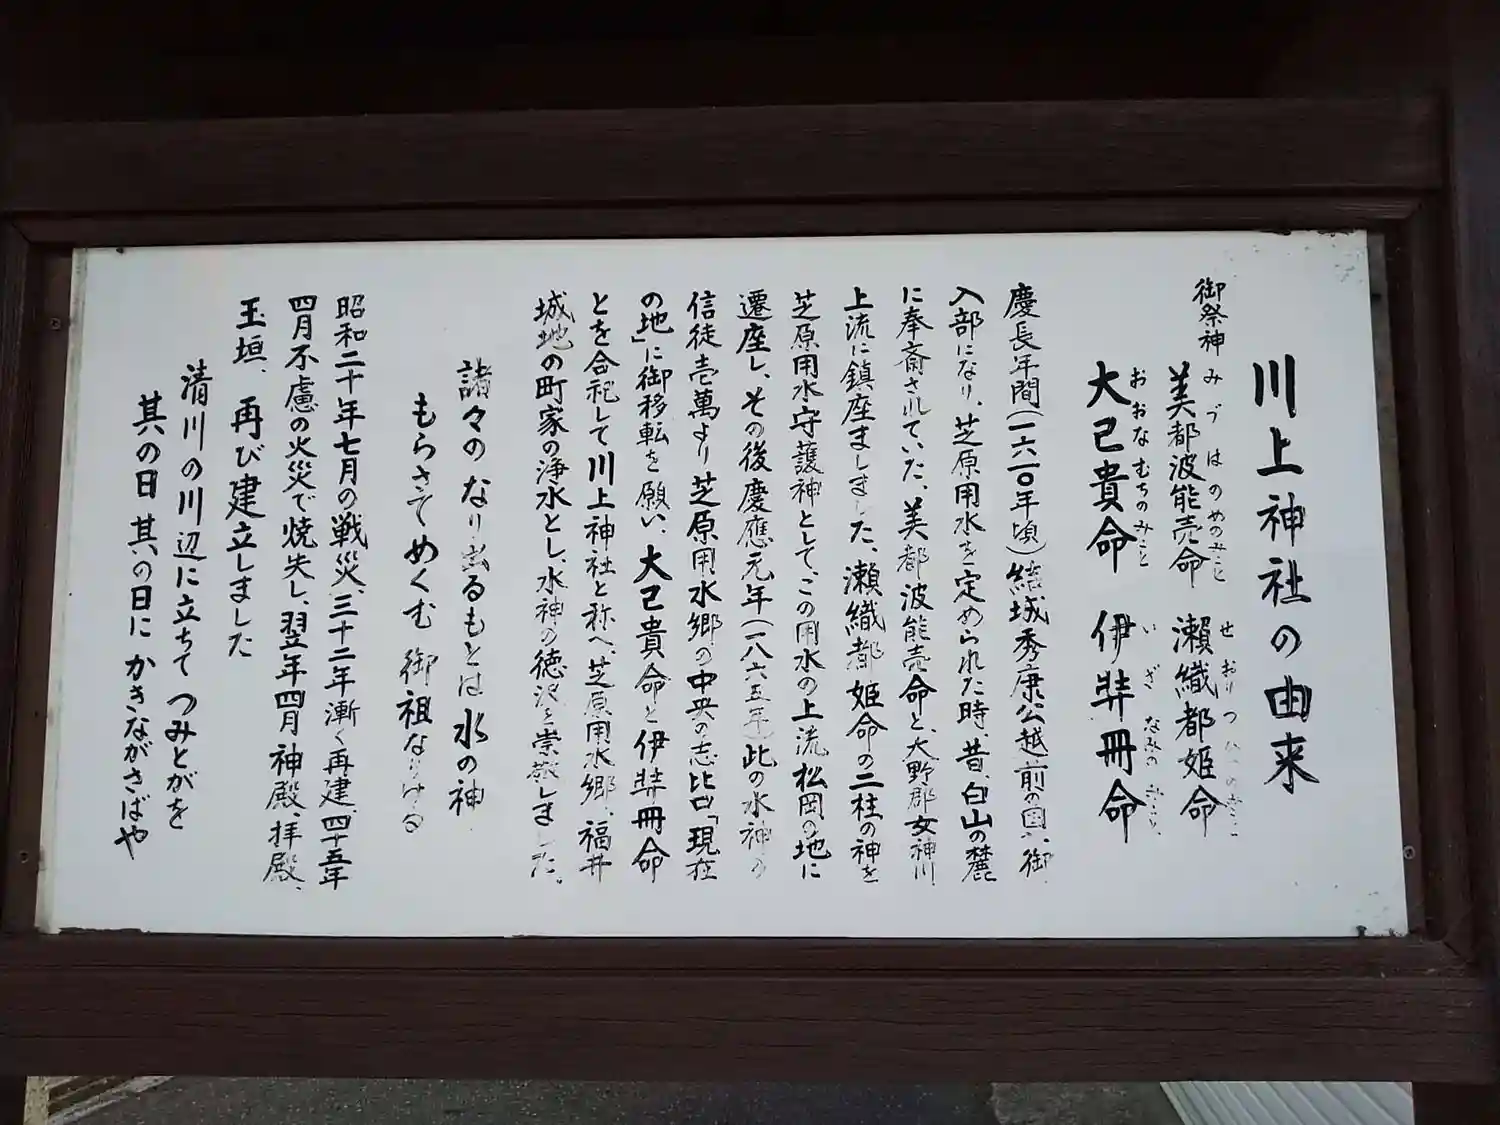 川上神社の由来
御祭神 美都波能売命 瀬織都姫命
みづはのめのみこと せおりつ
大己貴命 伊弉冊命
おおなむちのみこと いざなみの
慶長年間(一六一〇年頃)結城秀康公越前の国へ御
入部になり、芝原用水を定められた時、昔、白山の麓
に奉斎されていた、美都波能売命と、大野郡女神川
上流に鎮座ましました、瀬織都姫命の二柱の神を
芝原用水守護神として、この用水の上流松岡の地に
遷座し、その後慶應元年(一八六五年)此の水神の
信徒壱萬より芝原用水郷の中央の志比口「現在
の地」に御移転を願い、大己貴命と伊弉冊命
とを合祀して川上神社と称へ、芝原用水郷、福井
城地の町家の浄水とし、水神の徳沢を崇敬しました。
諸々のなり出るもとは水の神
もらさでめくむ御祖なりける
昭和二十年七月の戦災、三十二年漸く再建、四十五年
四月不慮の火災で焼失し、翌年四月神殿、拝殿、
玉垣、再び建立しました
清川の川辺に立ちてつみとがを
其の日其の日にかきながさばや